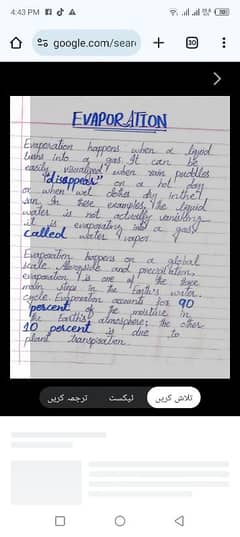 4:43 PM
google.com/sear
30
EVAPORATION
Evaporation happens when a liquid
turns into a gas. It can be
easily visualized when rain puddles
"disappear" on a hot day
or when wet clothes dry in the
sun. In these examples, the liquid
water is not actually vanishing
it is evaporating into a gas
called water vapor.
Evaporation happens on a global
scale. Alongside and precipitation,
evaporation is one of the three
main steps in the Earth's water
cycle. Evaporation accounts for 90
percent of the moisture in
the Earth's atmosphere; the other
10 percent is due to
plant transpiration.
تلاش کریں
ٹیکسٹ
ترجمہ کریں